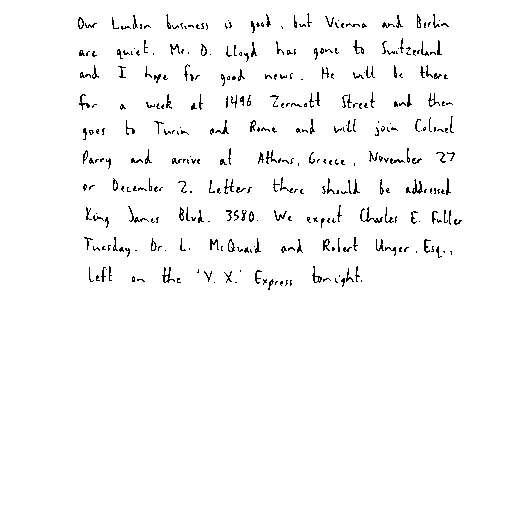 Our London business is good, but Vienna and Berlin
are quiet. Mr. D. Lloyd has gone to Switzerland
and I hope for good news. He will be there
for a week at 1496 Zermott Street and then
goes to Turin and Rome and will join Colonel
Parry and arrive at Athens, Greece, November 27
or December 2. Letters there should be addressed
King James Blvd. 3580. We expect Charles E. Fuller
Tuesday. Dr. L. McQuaid and Robert Unger, Esq.,
left on the 'Y. X.' Express tonight.